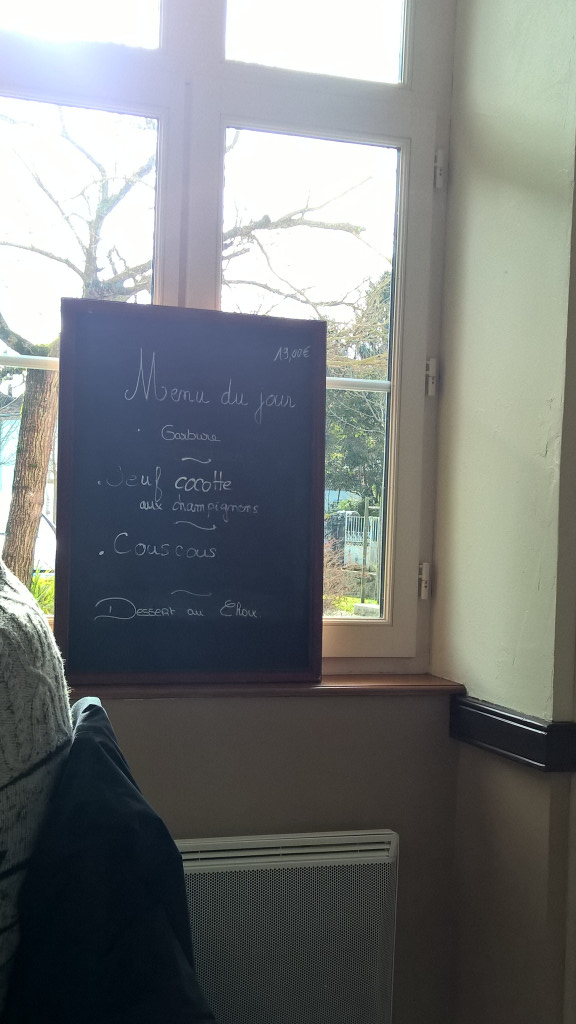 13,00€
Menu du jour
Garbure
. Oeuf cocotte
aux champignons
. Couscous
Dessert au Choix